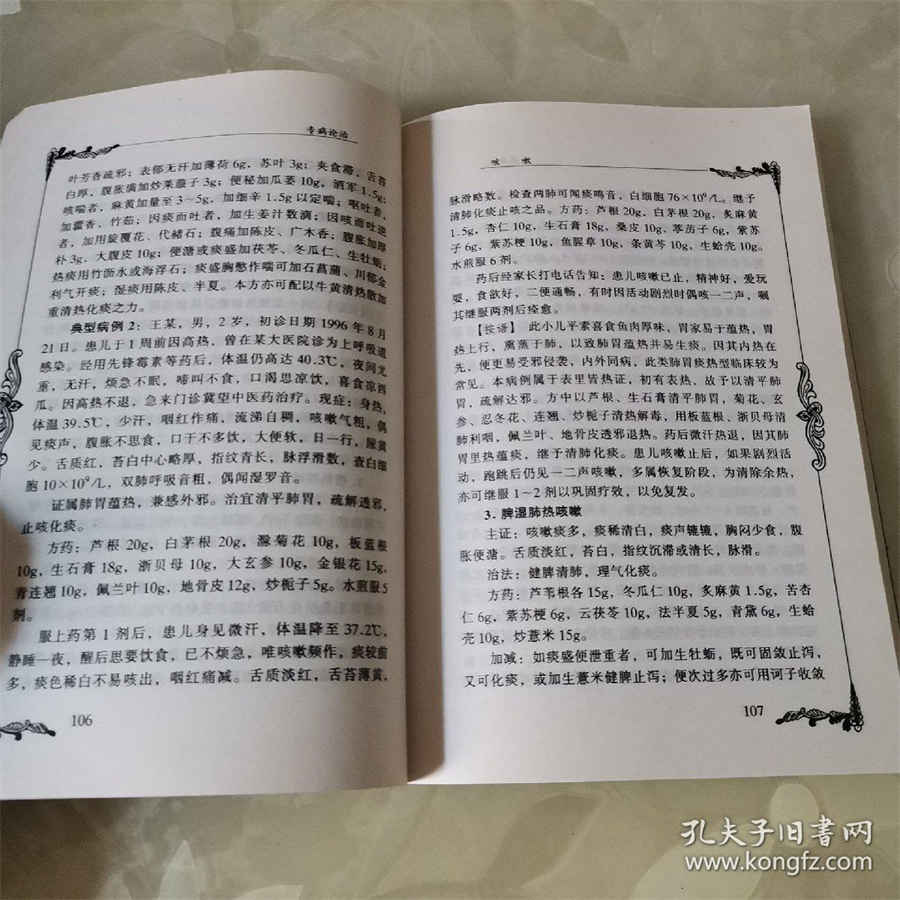 专病论治
叶芳香疏邪；表郁无汗加薄荷 6g，苏叶 3g；夹食滞，舌苔
白厚，腹胀满加炒莱菔子 3g；便秘加瓜蒌 10g，酒军 1.5g；
咳喘者，麻黄加量至 3～5g，加细辛 1.5g 以定喘；呕吐者，
加藿香，竹茹；因痰而吐者，加生姜汁数滴；因咳而吐
者，加用旋覆花、代赭石；腹痛加陈皮、广木香；腹胀加厚
朴 3g，大腹皮 10g；便溏或痰盛加茯苓、冬瓜仁、生牡蛎；
热痰用竹沥水或海浮石；痰盛胸憋作喘可加石菖蒲、川郁金
利气开痰；湿痰用陈皮、半夏。本方亦可配以牛黄清热散加
重清热化痰之力。
典型病例 2：王某，男，2 岁，初诊日期 1996 年 8 月
21 日。患儿于 1 周前因高热，曾在某大医院诊为上呼吸道
感染。经用先锋霉素等药后，体温仍高达 40.3℃，夜间尤
重，无汗，烦急不眠，啼叫不食，口渴思凉饮，喜食凉西
瓜。因高热不退，急来门诊冀望中医药治疗。现症：身热，
体温 39.5℃，少汗，咽红作痛，流涕自稠，咳嗽气粗，偶
见痰声，腹胀不思食，口干不多饮，大便软，日一行，尿黄
少。舌质红，苔白中心略厚，指纹青长，脉浮滑数，查白细
胞 10×10⁹/L，双肺呼吸音粗，偶闻湿罗音。
证属肺胃蕴热，兼感外邪。治宜清平肺胃，疏解透邪，
止咳化痰。
方药：芦根 20g，白茅根 20g，滁菊花 10g，板蓝根
10g，生石膏 18g，浙贝母 10g，大玄参 10g，金银花 15g，
青连翘 10g，佩兰叶 10g，地骨皮 12g，炒栀子 5g。水煎服 5
剂。
服上药第 1 剂后，患儿身见微汗，体温降至 37.2℃，
静睡一夜，醒后思要饮食，已不烦急，唯咳嗽频作，痰较前
多，痰色稀白不易咳出，咽红痛减。舌质淡红，舌苔薄黄，
106
咳 嗽
脉滑略数。检查两肺可闻痰鸣音，白细胞 76×10⁹/L。继予
清肺化痰止咳之品。方药：芦根 20g，白茅根 20g，炙麻黄
1.5g，杏仁 10g，生石膏 18g，桑皮 10g，葶苈子 6g，紫苏
子 6g，紫苏梗 6g，鱼腥草 10g，条黄芩 10g，生蛤壳 10g。
水煎服 6 剂。
药后经家长打电话告知：患儿咳嗽已止，精神好，爱玩
耍，食欲好，二便通畅，有时因活动剧烈时偶咳一二声，嘱
其继服两剂后痊愈。
【按语】 此小儿平素喜食鱼肉厚味，胃家易于蕴热，胃
热上行，熏蒸于肺，以致肺胃蕴热并易生痰。因其内热在
先，便更易受邪侵袭，内外同病，此类肺胃痰热型临床较为
常见。本病例属于表里皆热证，初有表热，故予以清平肺
胃，疏解达邪。方中以芦根、生石膏清平肺胃，菊花、玄
参、忍冬花、连翘、炒栀子清热解毒，用板蓝根、浙贝母清
肺利咽，佩兰叶、地骨皮透邪退热。药后微汗热退，因其肺
胃里热蕴痰，继予清肺化痰。患儿咳嗽止后，如果剧烈活
动，跑跳后仍见一二声咳嗽，多属恢复阶段，为清除余热，
亦可继服 1～2 剂以巩固疗效，以免复发。
3. 脾湿肺热咳嗽
主证：咳嗽痰多，痰稀清白，痰声辘辘，胸闷少食，腹
胀便溏。舌质淡红，苔白，指纹沉滞或清长，脉滑。
治法：健脾清肺，理气化痰。
方药：芦苇根各 15g，冬瓜仁 10g，炙麻黄 1.5g，苦杏
仁 6g，紫苏梗 6g，云茯苓 10g，法半夏 5g，青黛 6g，生蛤
壳 10g，炒薏米 15g。
加减：如痰盛便泄重者，可加生牡蛎，既可固敛止泻，
又可化痰，或加生薏米健脾止泻；便次过多亦可用诃子收敛
107
孔夫子旧书网
www.kongfz.com